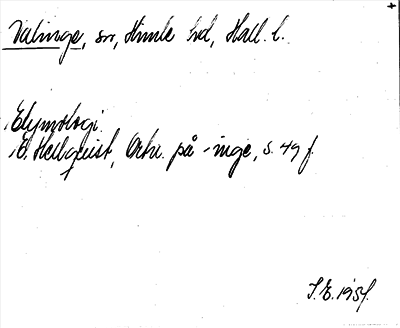 Valinge, sn, Himle hd, Hall. l.
Etymologi.
E. Hellquist, Ortn. på -inge, s. 49 f.
S.E. 1951.